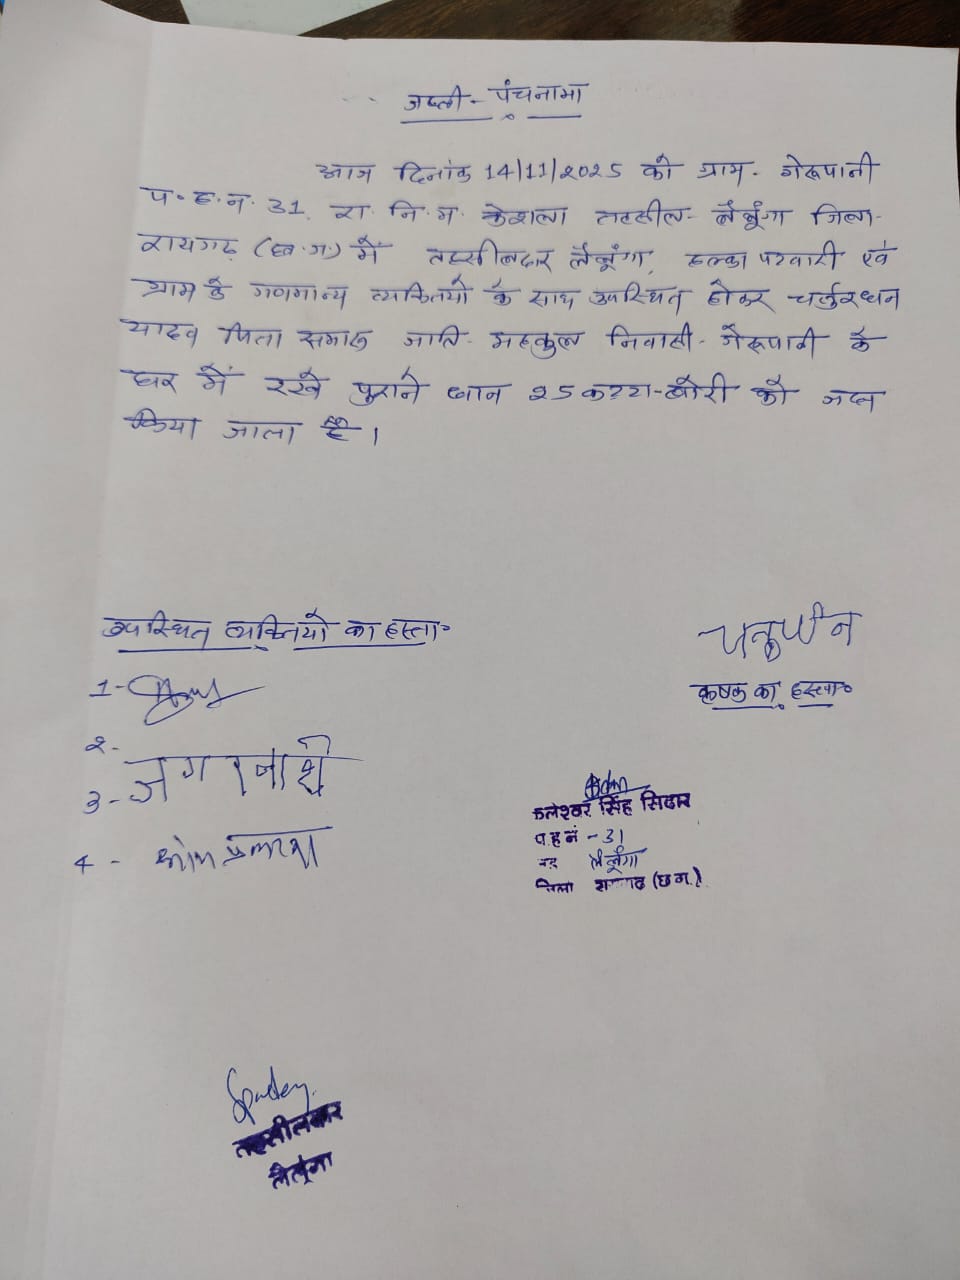 जप्ती - पंचनामा
आज दिनांक 14/11/2025 को ग्राम - गेरूपानी
प. ह. न. 31. रा. नि. म. केशला तहसील - लैलूंगा जिला -
रायगढ़ (छ. ग.) में तहसीलदार लैलूंगा, हल्का पटवारी एवं
ग्राम के गणमान्य व्यक्तियों के साथ उपस्थित होकर
यादव पिता जाति - महकुल निवासी - गेरूपानी के
घर में रखे पुराने धान 25 कट्टा - बोरी को जप्त
किया जाता है ।
उपस्थित व्यक्तियों का हस्ता०
कृषक का हस्ता०
1 -
2 -
3 -
4 - ओम प्रकाश
कलेश्वर सिंह सिदार
प ह नं - 31
लैलूंगा
जिला (छ ग.)
तहसीलदार
लैलूंगा